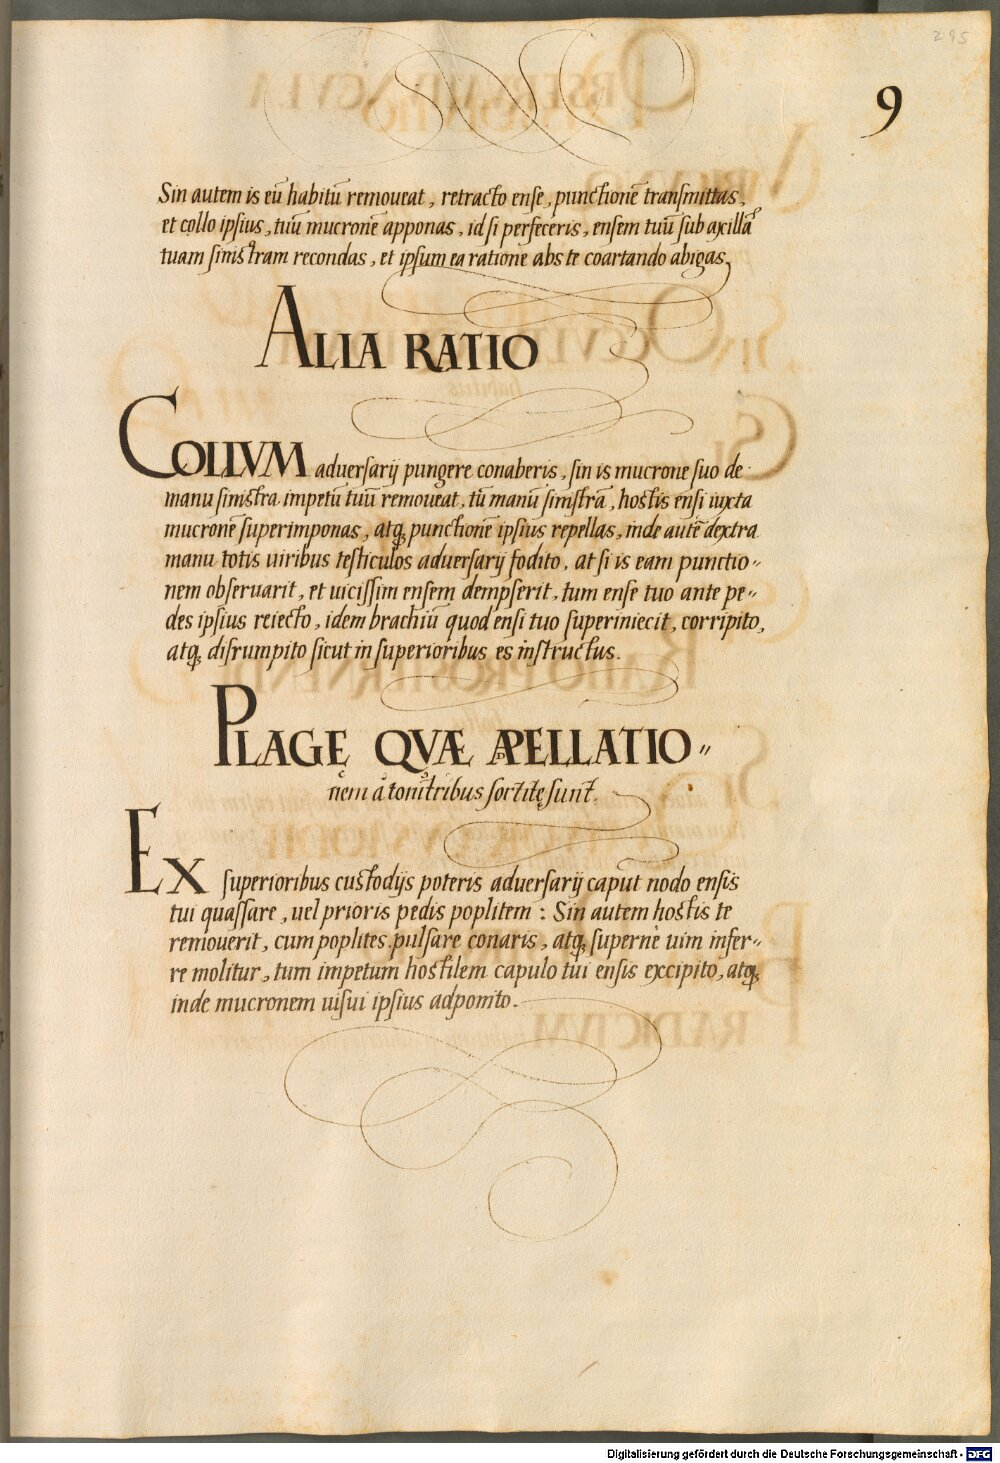 295
9
Sin autem is eũ habitũ remoueat, retracto ense, punctionẽ transmittas,
et collo ipsius, tuũ mucronẽ apponas, id si perfeceris, ensem tuũ sub axillã
tuam sinistram recondas, et ipsum ea ratione abs te coartando abigas.
ALIA RATIO
COLLVM aduersarij pungere conaberis, sin is mucrone suo de
manu sinistra impetũ tuũ remoueat, tũ manũ sinistrã, hostis ensi iuxta
mucronẽ superimponas, atqꝫ punctionẽ ipsius repellas, inde autẽ dextra
manu totis uiribus testiculos aduersarij fodito, at si is eam punctio〃
nem obseruarit, et uicissim ensem dempserit, tum ense tuo ante pe〃
des ipsius reiecto, idem brachiũ quod ensi tuo superiniecit, corripito,
atqꝫ disrumpito sicut in superioribus es instructus.
PLAGĘ QVÆ APPELLATIO〃
nem à tonitribus sortitę sunt.
EX superioribus custodijs poteris aduersarij caput nodo ensis
tui quassare, uel prioris pedis poplitem: Sin autem hostis te
remouerit, cum poplites pulsare conaris, atqꝫ supernè uim infer〃
re molitur, tum impetum hostilem capulo tui ensis excipito, atqꝫ
inde mucronem uisui ipsius adponito.
Digitalisierung gefördert durch die Deutsche Forschungsgemeinschaft - DFG